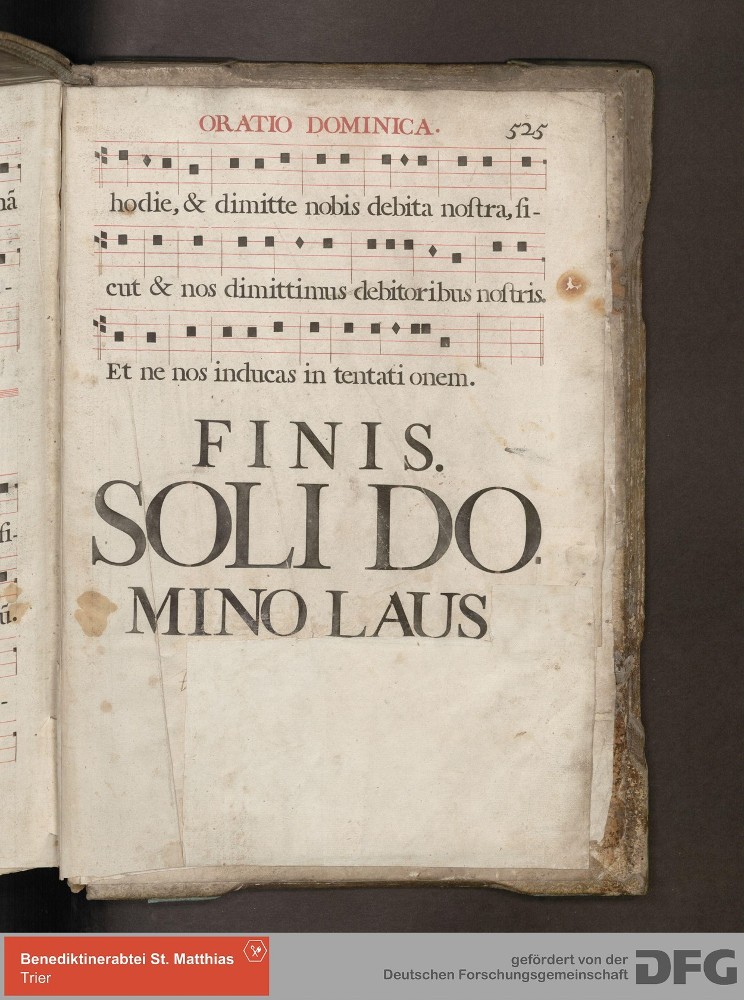 ORATIO DOMINICA. 525
hodie, & dimitte nobis debita noſtra, ſi-
cut & nos dimittimus debitoribus noſtris.
Et ne nos inducas in tentati onem.
FINIS.
SOLI DO.
MINO LAUS
nã
-
ſi-
ũ.
-
Benediktinerabtei St. Matthias
Trier
gefördert von der
Deutschen Forschungsgemeinschaft
DFG